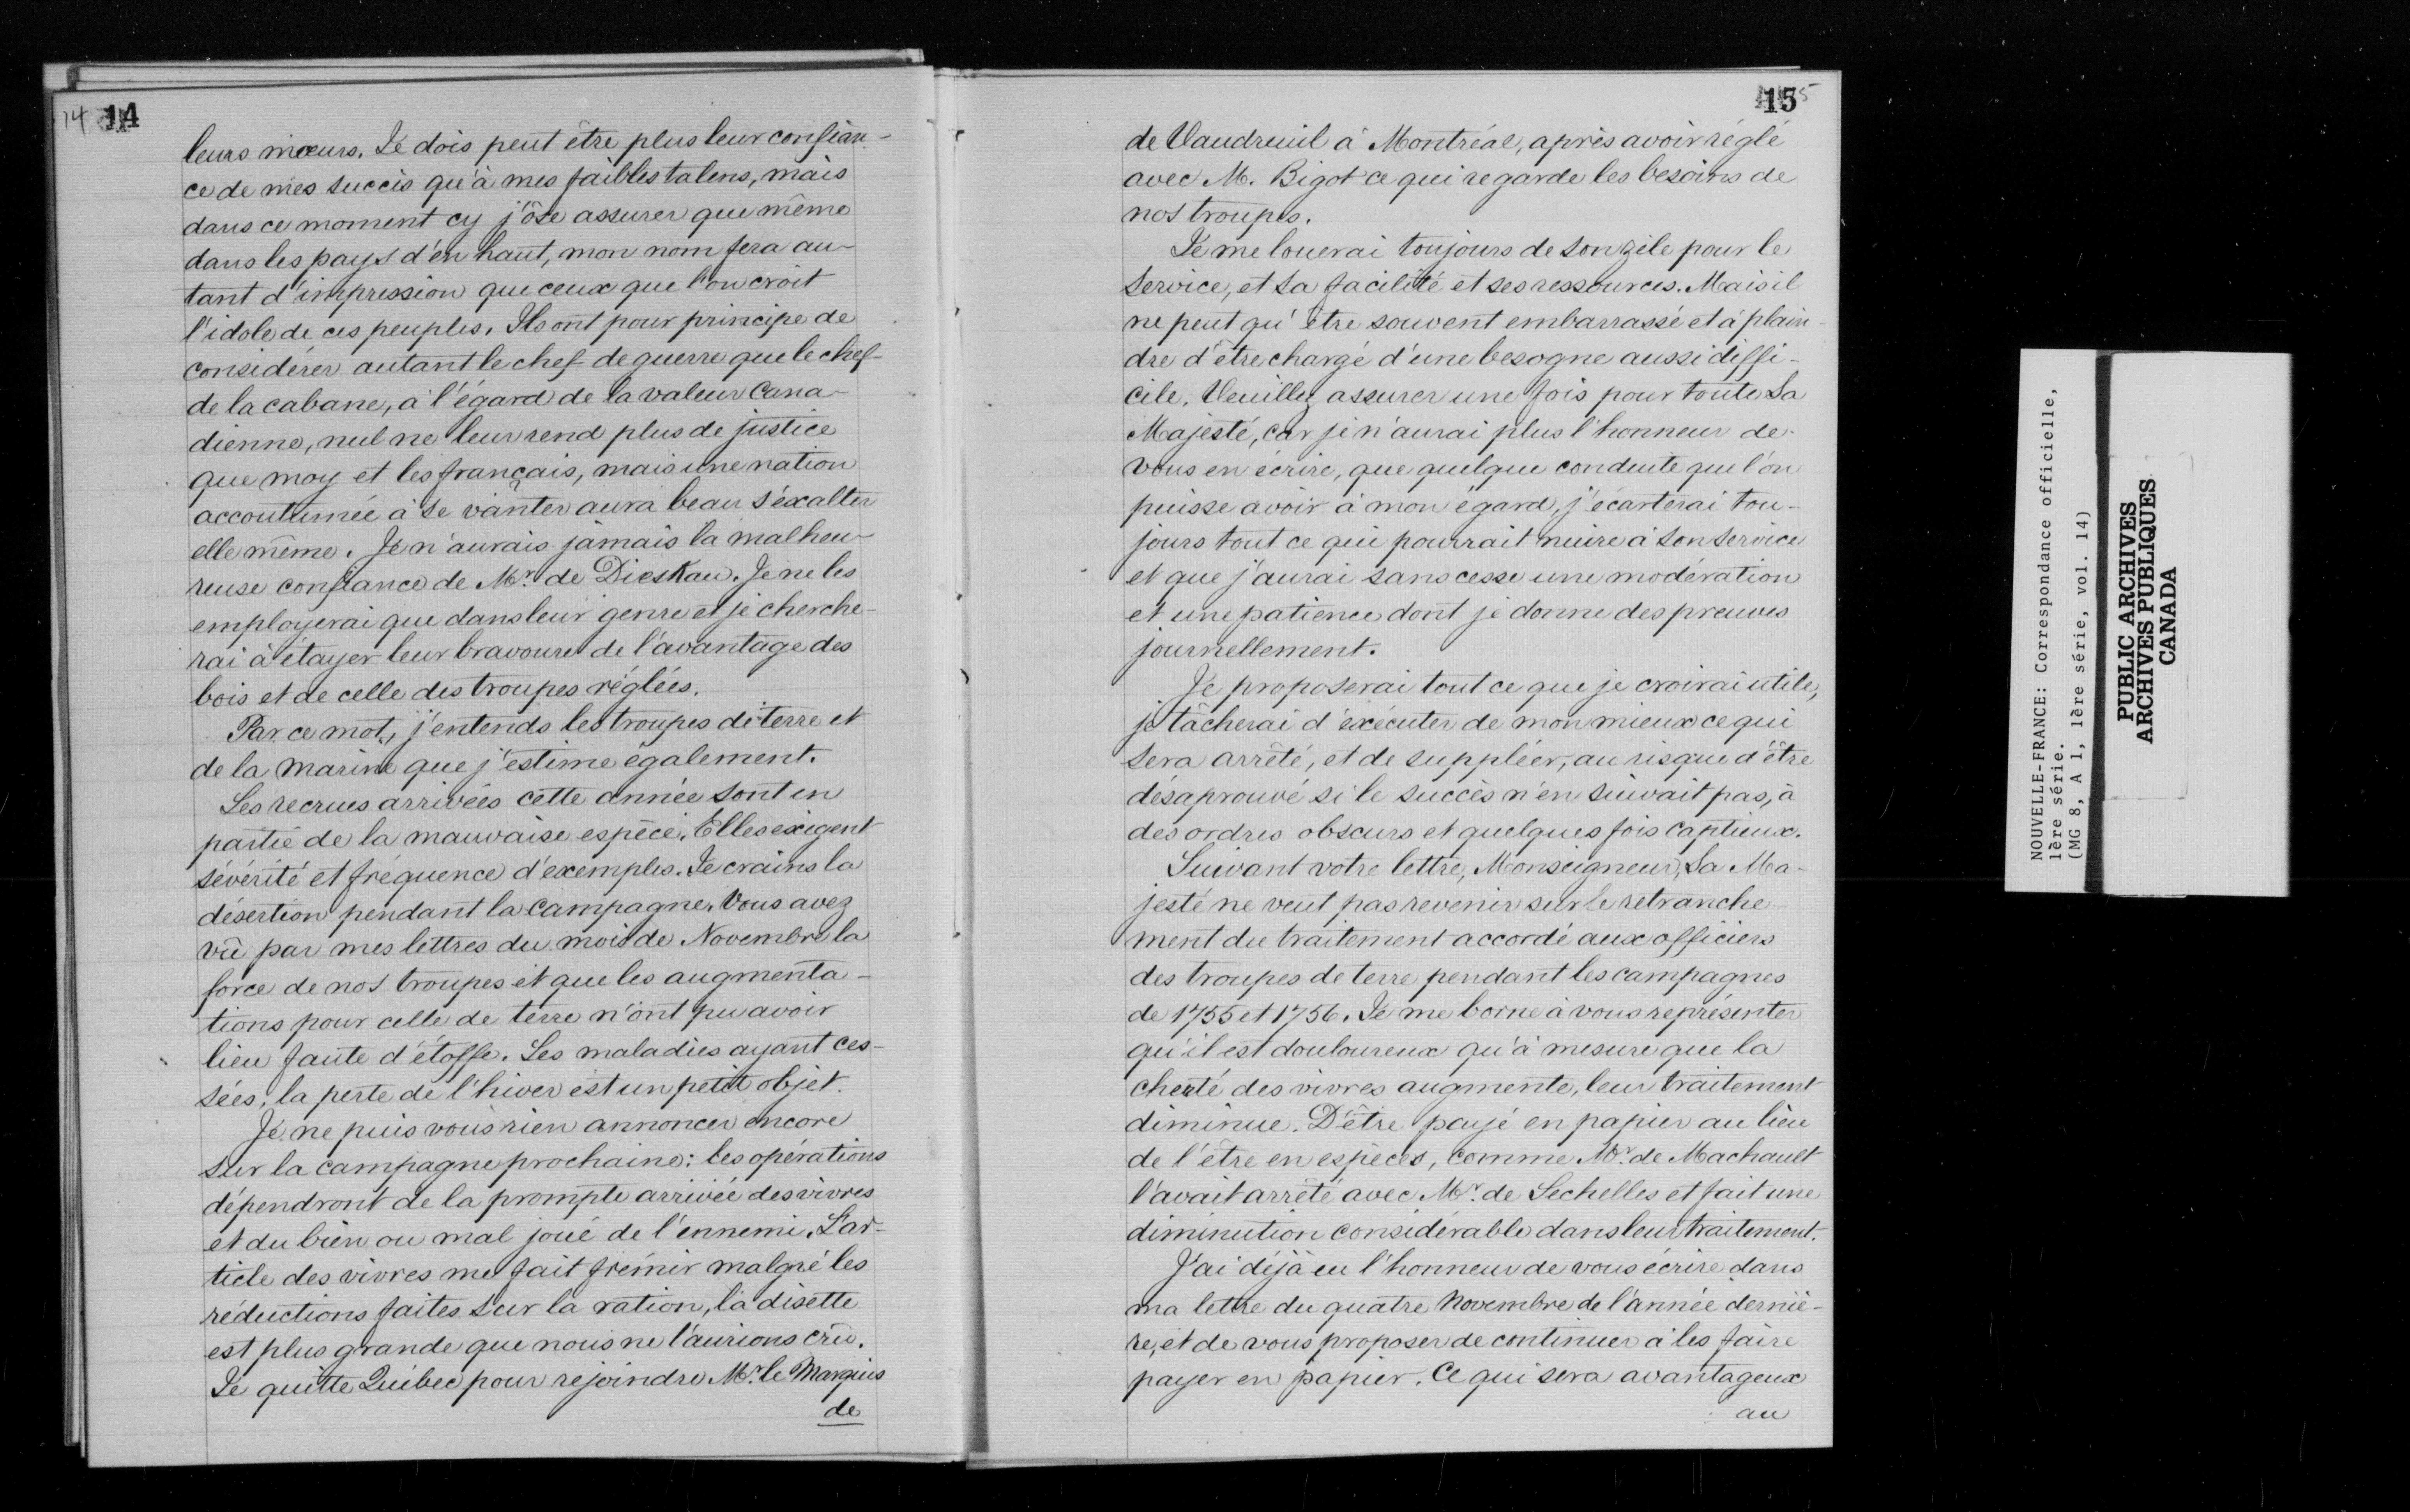 14 14
leurs mœurs. Je dois peut être plus leur confian-
ce de mes succès qu'à mes faibles talens, mais
dans ce moment cy j'ôse assurer que même
dans les pays d'en haut, mon nom fera au-
tant d'impression que ceux que l'on croit
l'idole de ces peuples. Ils ont pour principe de
considérer autant le chef de guerre que le chef
de la cabane, à l'égard de la valeur cana-
dienne, nul ne leur rend plus de justice
que moy et les français, mais une nation
accoutumée à se vanter aura beau s'éxalter
elle même. Je n'aurais jamais la malheu-
reuse confiance de Mr. de Dieskau. Je ne les
employerai que dans leur genre et je cherche-
rai à étayer leur bravoure de l'avantage des
bois et de celle des troupes réglées.
Par ce mot, j'entends les troupes de terre et
de la marine que j'estime également.
Les recrues arrivées cette année sont en
partie de la mauvaise espèce. Elles exigent
sévérité et fréquence d'exemples. Je crains la
désertion pendant la campagne. Vous avez
vû par mes lettres du mois de Novembre la
force de nos troupes et que les augmenta-
tions pour celle de terre n'ont pu avoir
lieu faute d'étoffe. Les maladies ayant ces-
sées, la perte de l'hiver est un petit objet.
Je ne puis vous rien annoncer encore
sur la campagne prochaine: les opérations
dépendront de la prompte arrivée des vivres
et du bien ou mal joué de l'ennemi. L'ar-
ticle des vivres me fait frémir malgré les
réductions faites sur la ration, la disette
est plus grande que nous ne l'aurions crû.
Je quitte Québec pour rejoindre Mr. le Marquis
de
15 5
de Vaudreuil à Montréal, après avoir réglé
avec M. Bigot ce qui regarde les besoins de
nos troupes.
Je me louerai toujours de son zèle pour le
service, et sa facilité et ses ressources. Mais il
ne peut qu'être souvent embarrassé et à plain-
dre d'être chargé d'une besogne aussi diffi-
cile. Veuillez assurer une fois pour toute Sa
Majesté, car je n'aurai plus l'honneur de
vous en écrire, que quelque conduite que l'on
puisse avoir à mon égard, j'écarterai tou-
jours tout ce qui pourrait nuire à son service
et que j'aurai sans cesse une modération
et une patience dont je donne des preuves
journellement.
Je proposerai tout ce que je croirai utile,
je tâcherai d'exécuter de mon mieux ce qui
sera arrêté, et de suppléer, au risque d'être
désaprouvé si le succès n'en suivait pas, à
des ordres obscurs et quelques fois captieux.
Suivant votre lettre, Monseigneur, Sa Ma-
jesté ne veut pas revenir sur le retranche-
ment du traitement accordé aux officiers
des troupes de terre pendant les campagnes
de 1755 et 1756. Je me borne à vous représenter
qu'il est douloureux qu'à mesure que la
cherté des vivres augmente, leur traitement
diminue. D'être payé en papier au lieu
de l'être en espèces, comme Mr. de Machault
l'avait arrêté avec Mr. de Sechelles et fait une
diminution considérable dans leur traitement.
J'ai déjà eu l'honneur de vous écrire dans
ma lettre du quatre Novembre de l'année derniè-
re, et de vous proposer de continuer à les faire
payer en papier. Ce qui sera avantageux
au
NOUVELLE-FRANCE: Correspondance officielle,
1ère série.
(MG 8, A 1, 1ère série, vol. 14)
PUBLIC ARCHIVES
ARCHIVES PUBLIQUES
CANADA